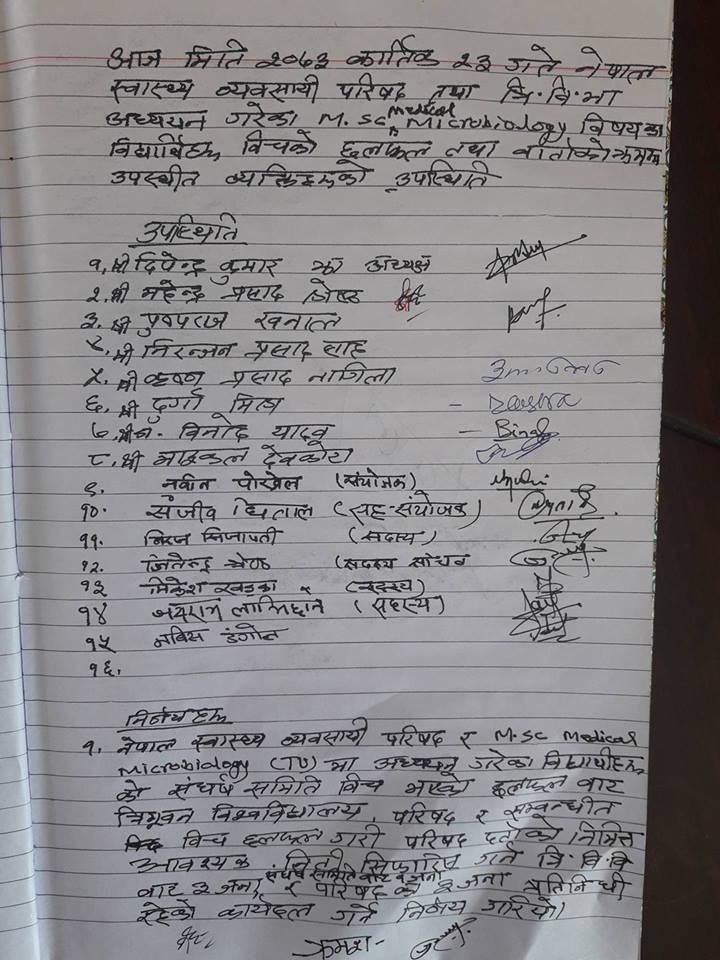 आज मिति २०७३ कार्तिक २३ गते नेपाल
स्वास्थ्य व्यवसायी परिषद तथा त्रि.वि.मा
अध्ययन गरेका M.Sc Medical Microbiology विषयका
विद्यार्थिहरु विचको छलफल तथा वार्ताको क्रममा
उपस्थीत व्यक्तिहरुको उपस्थिति
उपस्थिति
१. श्री दिपेन्द्र कुमार झा अध्यक्ष
२. श्री महेन्द्र प्रसाद श्रेष्ठ
३. श्री पुष्पराज खनाल
४. श्री निरन्जन प्रसाद साह
५. श्री कृष्ण प्रसाद नागिला
६. श्री दुर्गा मिश्र -
७. श्री विनोद यादव - Binod
८. श्री देवकोटा
९. नवीन पोखेल (संयोजक)
१०. संजीव धिताल (सह-संयोजक)
११. बिजापती (सदस्य)
१२. जितेन्द्र श्रेष्ठ (सदस्य सचिव
१३ मिकेश खड्का (सदस्य)
१४ जयराम लामिछाने (सदस्य)
१५ नविस डंगोल
१६.
निर्णयहरु
१. नेपाल स्वास्थ्य व्यवसायी परिषद र M.Sc Medical
Microbiology (TU) मा अध्ययन गरेका विद्यार्थीहरु
को संघर्ष समिति विच भएको छलफल बाट
त्रिभूवन विश्वविद्यालय, परिषद र सम्वन्धीत
विच छलफल गरी परिषद दर्ताको निमित्त
आवश्यक सिफारिस गर्न त्रि.वि.वि
बाट ३ जना, संघर्ष समिति बाट २ जना र परिषद को ३ जना प्रतिनिधी
रहेको कार्यदल गर्ने निर्णय गरियो।
क्रमश-